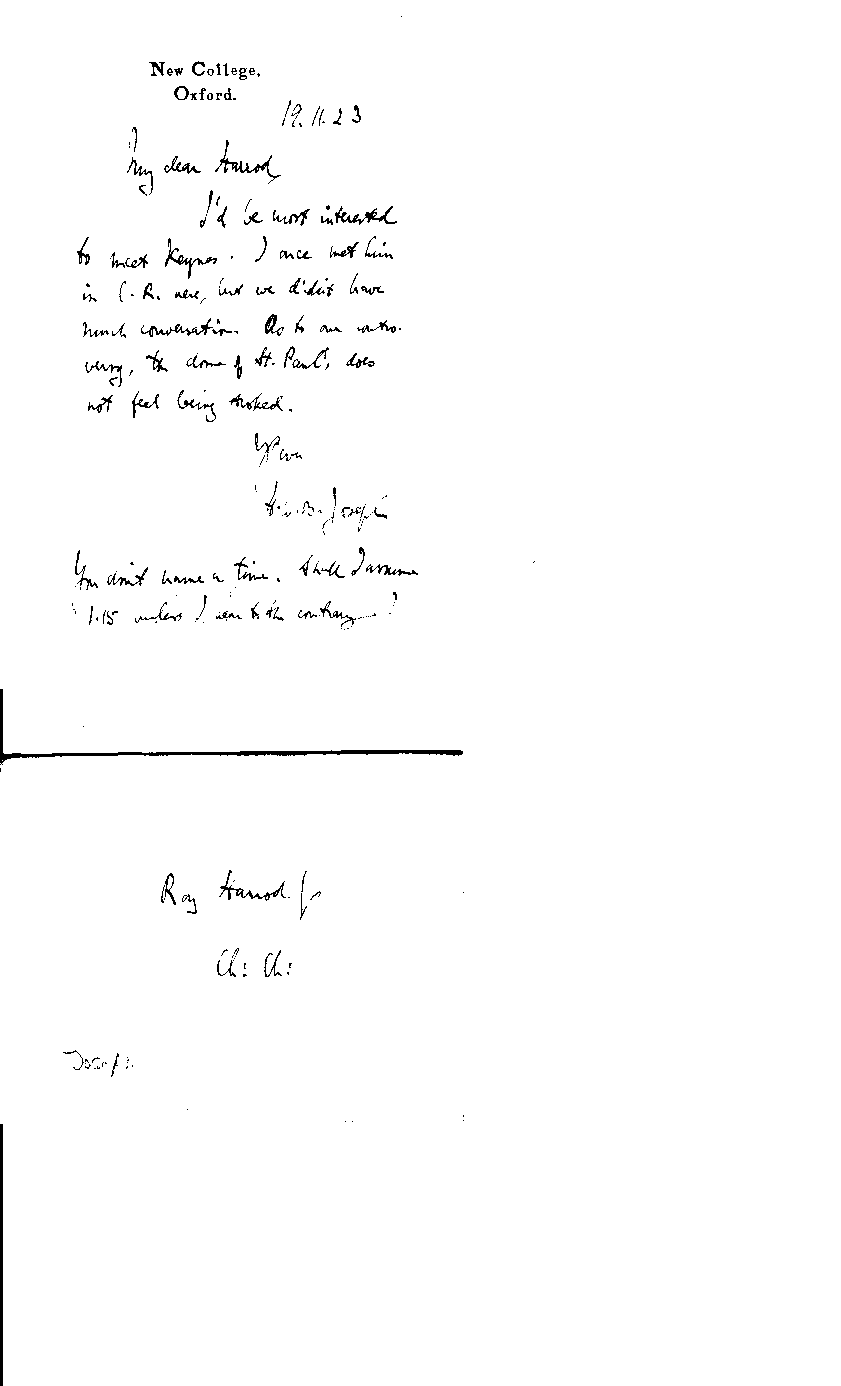 New College,
Oxford.
19.11.23
My dear Harrod,
I'd be most interested
to meet Keynes. I once met him
in C.R. here, but we didn't have
much conversation. As to our contro-
versy, the dome of St. Paul's does
not feel being stroked.
Yours
H.W.B. Joseph
You don't name a time. Shall I assume
1.15 unless I hear to the contrary?
Roy Harrod
Ch: Ch:
Joseph